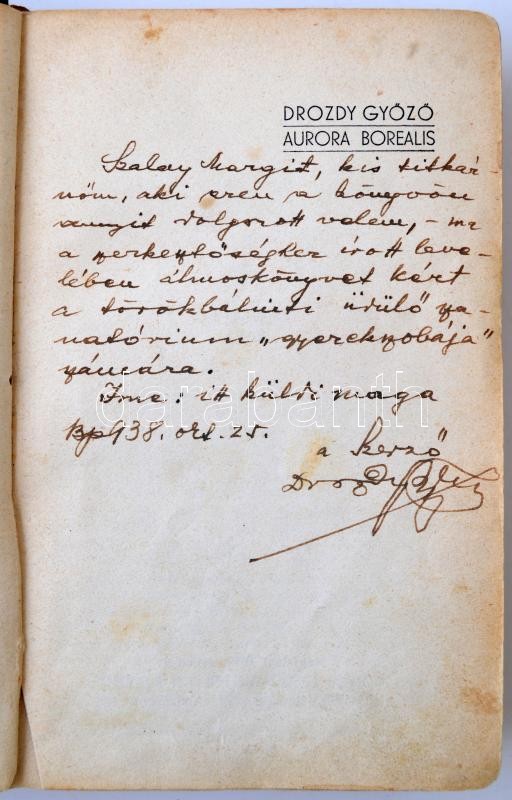 DROZDY GYŐZŐ
AURORA BOREALIS
Szalay Margit, kis titkár-
nőm, aki ezen a könyvön
annyit dolgozott velem, - ma
a szerkesztőséghez írott leve-
lében álmoskönyvet kért
a törökbálinti üdülő sza-
natórium „gyerekszobája"
számára.
Íme: itt küldi maga
Bp 938. okt. 25.
a szerző
Drozdy Győző
darabanth